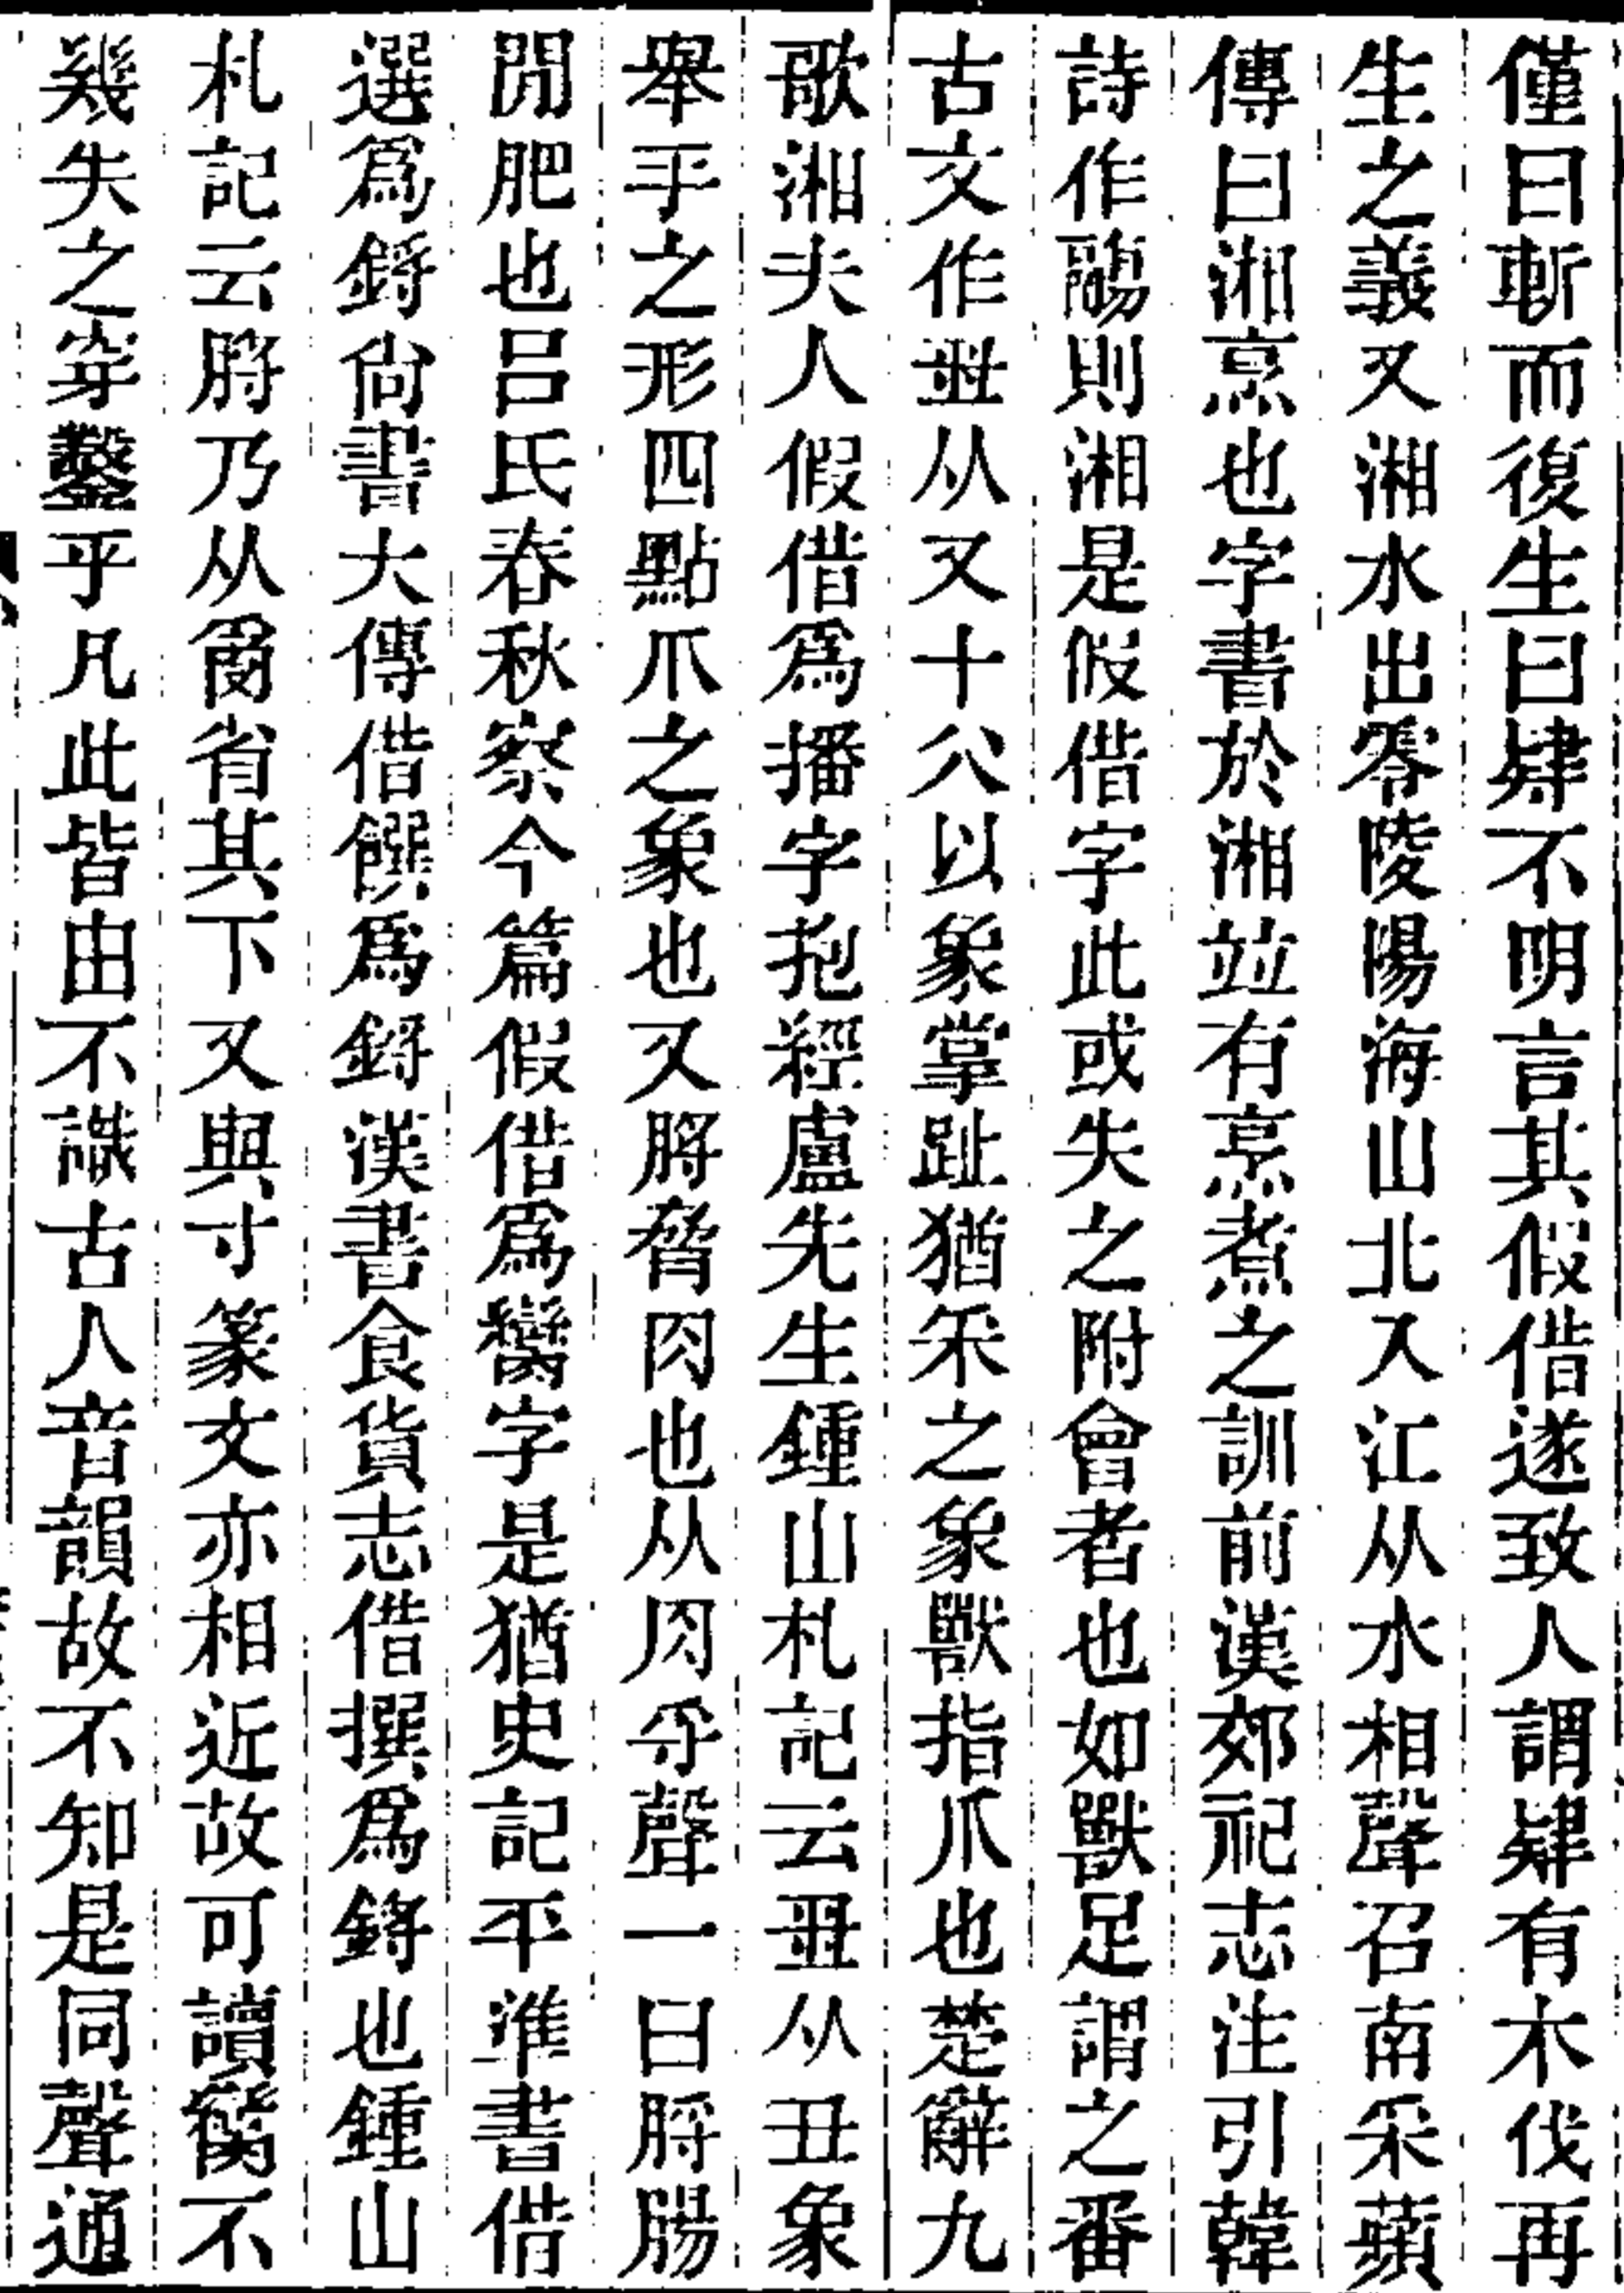 僅曰斬而復生曰肄不明言其假借遂致人謂肄有木伐再
生之義又湘水出零陵陽海山北入江从水相聲召南采蘋
傳曰湘烹也字書於湘竝有烹煮之訓前漢郊祀志注引韓
詩作鬺則湘是假借字此或失之附會者也如獸足謂之番
古文作𠀬从又十公以象掌趾猶釆之象獸指爪也楚辭九
歌湘夫人假借為播字抱經盧先生鍾山札記云𠀬从丑象
舉手之形四點爪之象也又脟脅肉也从肉寽聲一曰脟腸
閒肥也呂氏春秋察今篇假借爲臠字是猶史記平準書借
選爲鋝尙書大傳借饌爲鋝漢書食貨志借撰爲鋝也鍾山
札記云脟乃从𤔔省其下又與寸篆文亦相近故可讀臠不
幾失之穿鑿乎凡此皆由不識古人音韻故不知是同聲通